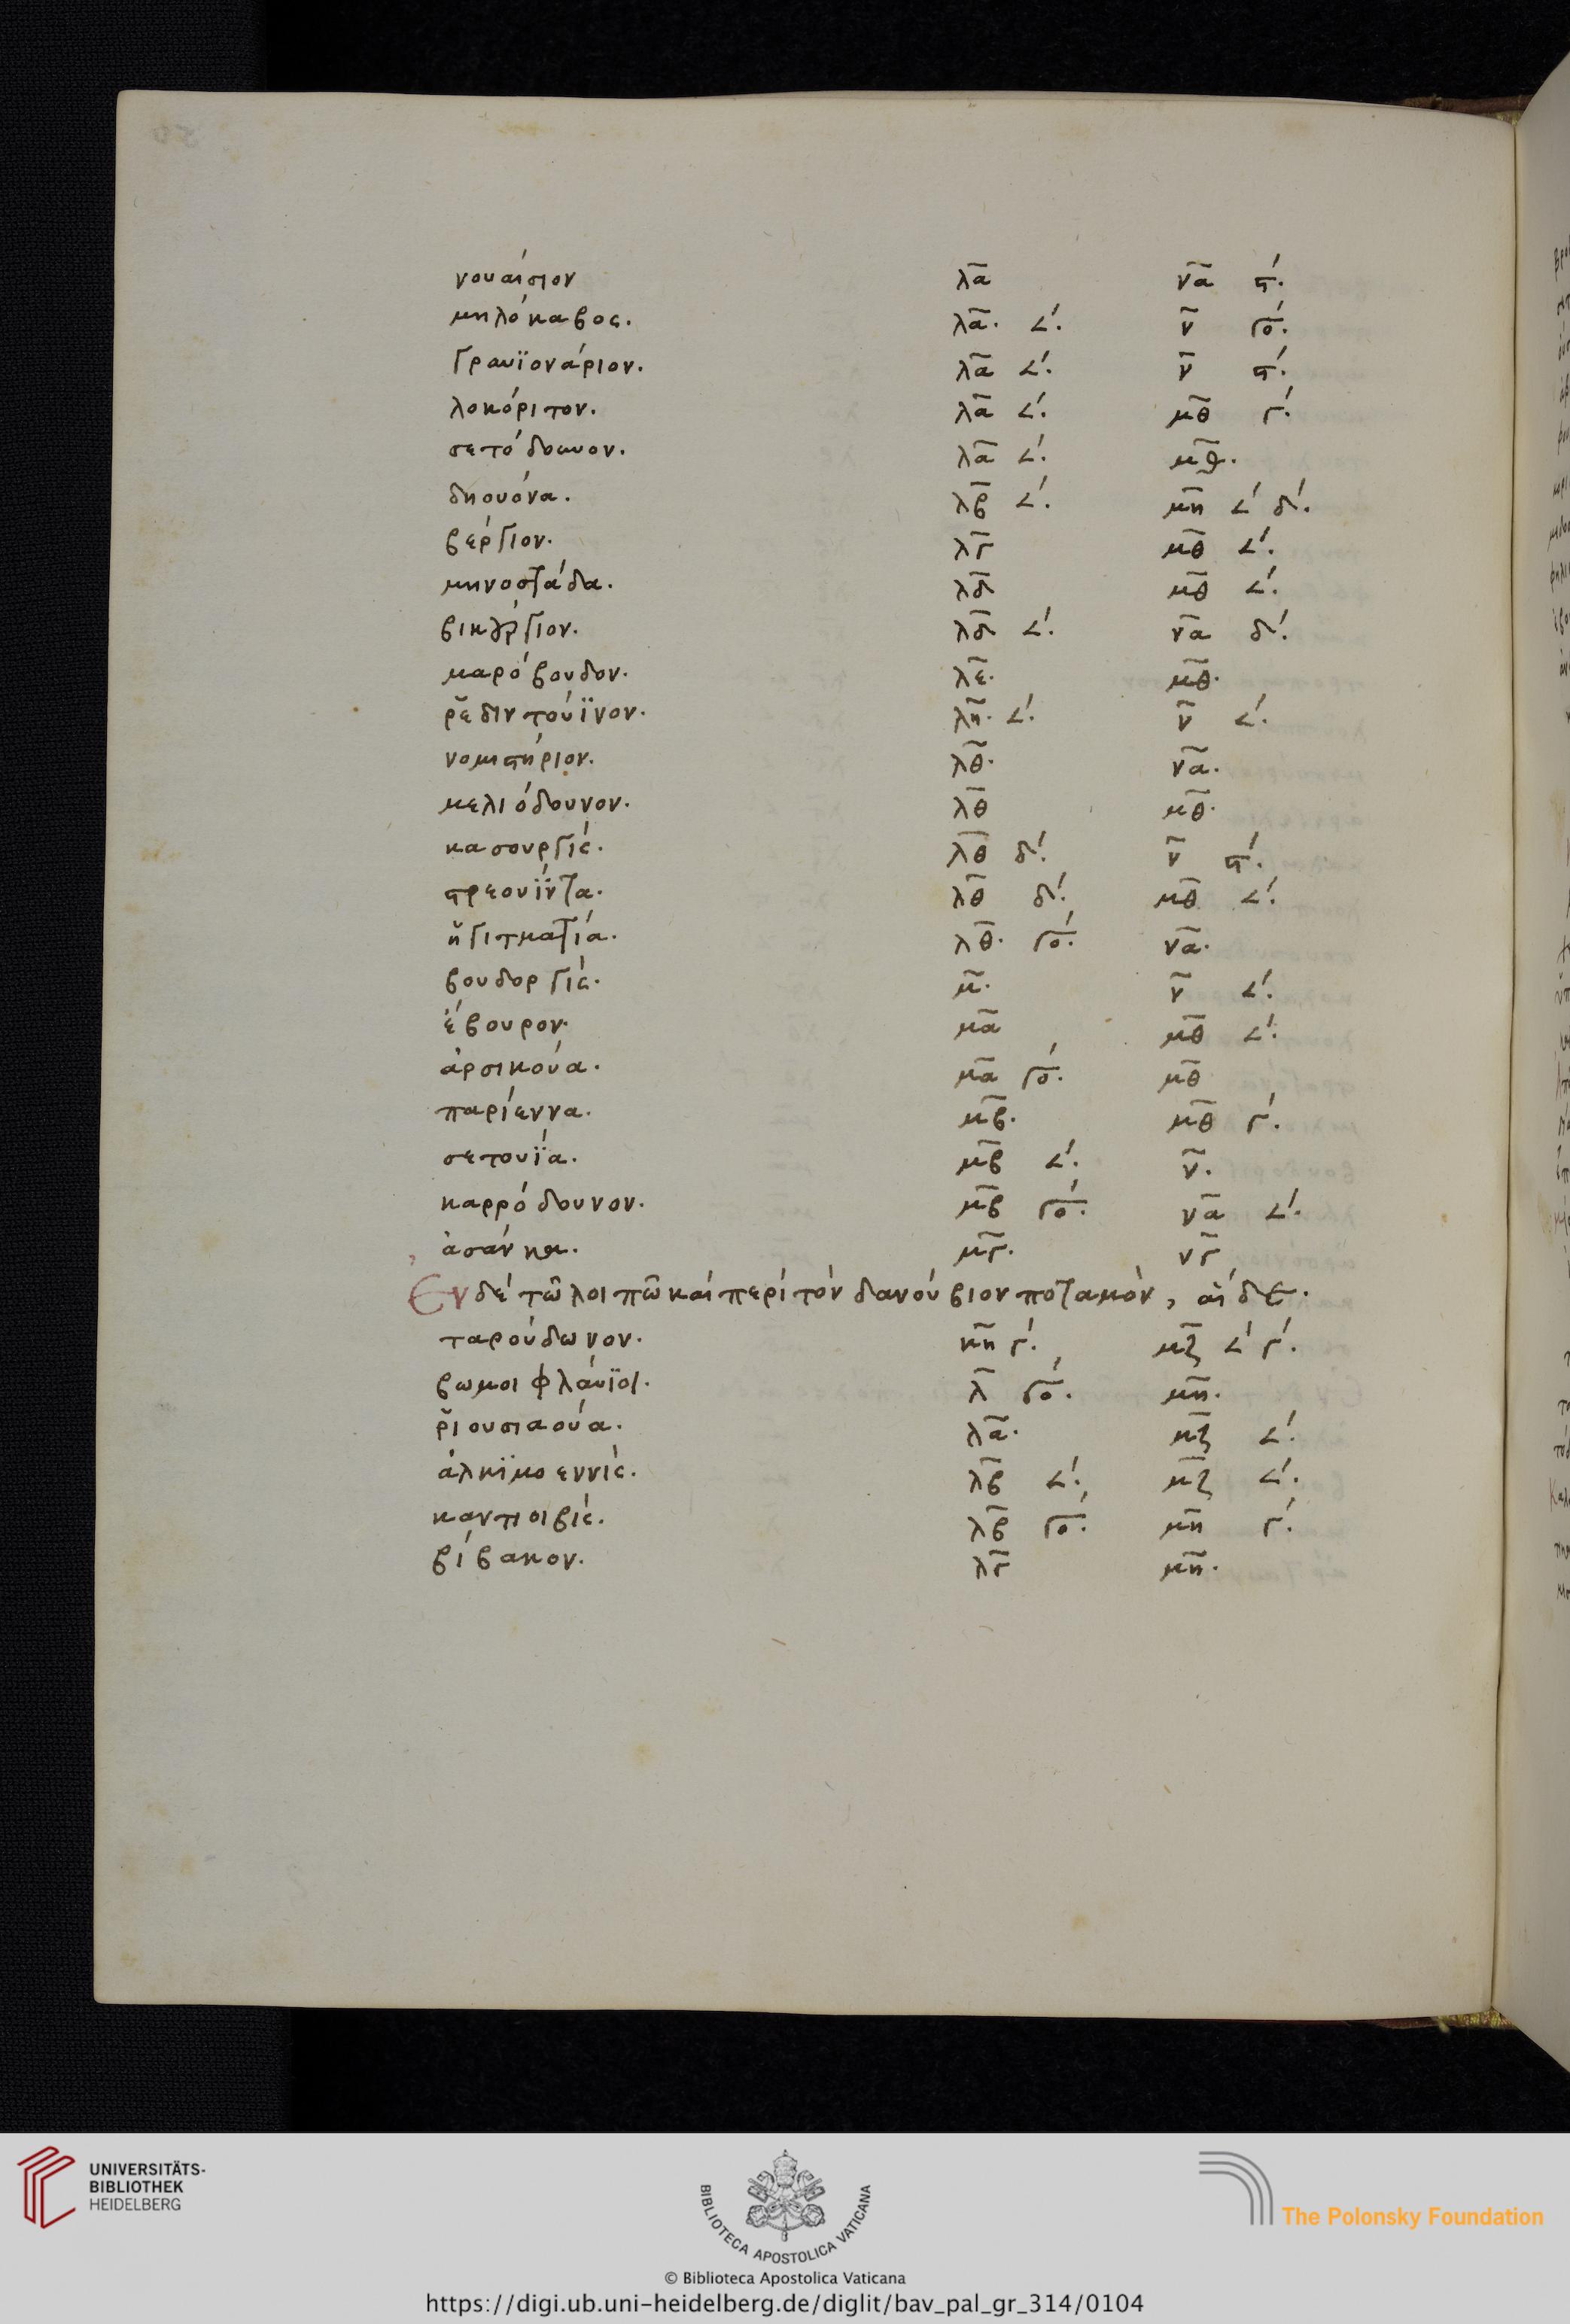 νουαίσιον λ̅α̅ ν̅α̅ ϛʹ.
μηλόκαβος. λ̅α̅. ∠ʹ. ν̅ γ̅ο̅ʹ.
γραυϊονάριον. λ̅α̅ ∠ʹ. ν̅ ϛʹ.
λοκόριτον. λ̅α̅ ∠ʹ. μ̅θ̅ γʹ.
σετόδουνον. λ̅α̅ ∠ʹ. μ̅θ̅.
δηουόνα. λ̅β̅ ∠ʹ. μ̅η̅ ∠ʹ δʹ.
βέργιον. λ̅γ̅ μ̅θ̅ ∠ʹ.
μηνοστάδα. λ̅δ̅ μ̅θ̅ ∠ʹ.
βικούργιον. λ̅δ̅ ∠ʹ. ν̅α̅ δʹ.
μαρόβουδον. λ̅ε̅. μ̅θ̅.
ῥεδιντούϊνον. λ̅η̅. ∠ʹ. ν̅ ∠ʹ.
νομιστήριον. λ̅θ̅. ν̅α̅.
μελιόδουνον. λ̅θ̅ μ̅θ̅.
κασουργίς. λ̅θ̅ δʹ. ν̅ ϛʹ.
στρεουΐντα. λ̅θ̅ δʹ. μ̅θ̅ ∠ʹ.
ἡγιτματία. λ̅θ̅. γ̅ο̅ʹ. ν̅α̅.
βουδοργίς. μ̅. ν̅ ∠ʹ.
ἔβουρον. μ̅α̅ μ̅θ̅ ∠ʹ.
ἀρσικούα. μ̅α̅ γ̅ο̅ʹ. μ̅θ̅
παρίεννα. μ̅β̅. μ̅θ̅ γʹ.
σετουΐα. μ̅β̅ ∠ʹ. ν̅.
καρρόδουνον. μ̅β̅ γ̅ο̅ʹ. ν̅α̅ ∠ʹ.
ἀσάνκα. μ̅γ̅. ν̅γ̅
Ἐν δὲ τῶ λοιπῶ καὶ περὶ τὸν δανούβιον ποταμὸν, αἵδε.
ταρούδωνον. κ̅η̅ γʹ. μ̅ζ̅ ∠ʹ γʹ.
βωμοι φλάυϊοι. λ̅ γ̅ο̅ʹ. μ̅η̅.
ῥιουσιαούα. λ̅α̅. μ̅ζ̅ ∠ʹ.
ἀλκϊμοεννίς. λ̅β̅ ∠ʹ. μ̅ζ̅ ∠ʹ.
καντιοιβίς. λ̅β̅ γ̅ο̅ʹ. μ̅η̅ γʹ.
βίβακον. λ̅γ̅ μ̅η̅.
UNIVERSITÄTS-
BIBLIOTHEK
HEIDELBERG
BIBLIOTECA APOSTOLICA VATICANA
The Polonsky Foundation
© Biblioteca Apostolica Vaticana
https://digi.ub.uni-heidelberg.de/diglit/bav_pal_gr_314/0104